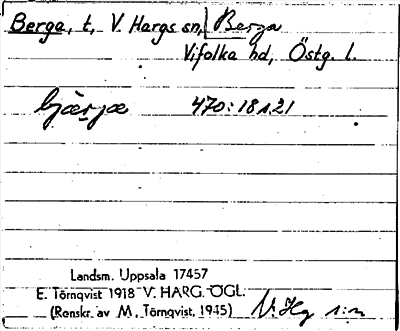 Berga, t, V. Hargs sn, Berga
Vifolka hd, Östg. l.
bjærjæ 470: 18 s. 21
Landsm. Uppsala 17457
E. Törnqvist 1918 V. HARG. ÖGL.
(Renskr. av M. Törnqvist, 1945) V. Hg s:n